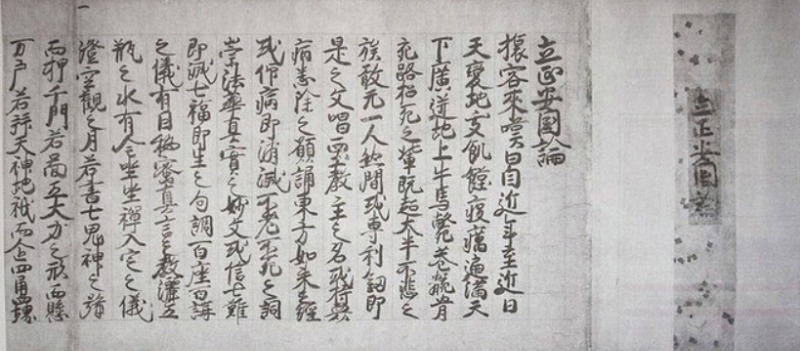 立正安國論
立正安國論
旅客來嘆曰自近年至近日
天變地夭飢饉疫癘遍滿天
下廣迸地上牛馬斃巷骸骨
充路招死之輩既超大半不悲之
族敢无一人然間或專利劔即
是之文唱西土教主之名或持衆
病悉除之願誦東方如来之經
或仰病即消滅不老不死之詞
崇法華真實之妙文或信七難
即滅七福即生之句調百座百講
之儀有因秘密真言之教灑五
瓶之水有全坐禪入定之儀
澄空觀之月若書七鬼神之号
而押千門若圖五大力之形而懸
万戸若拜天神地祇而企四角四堺